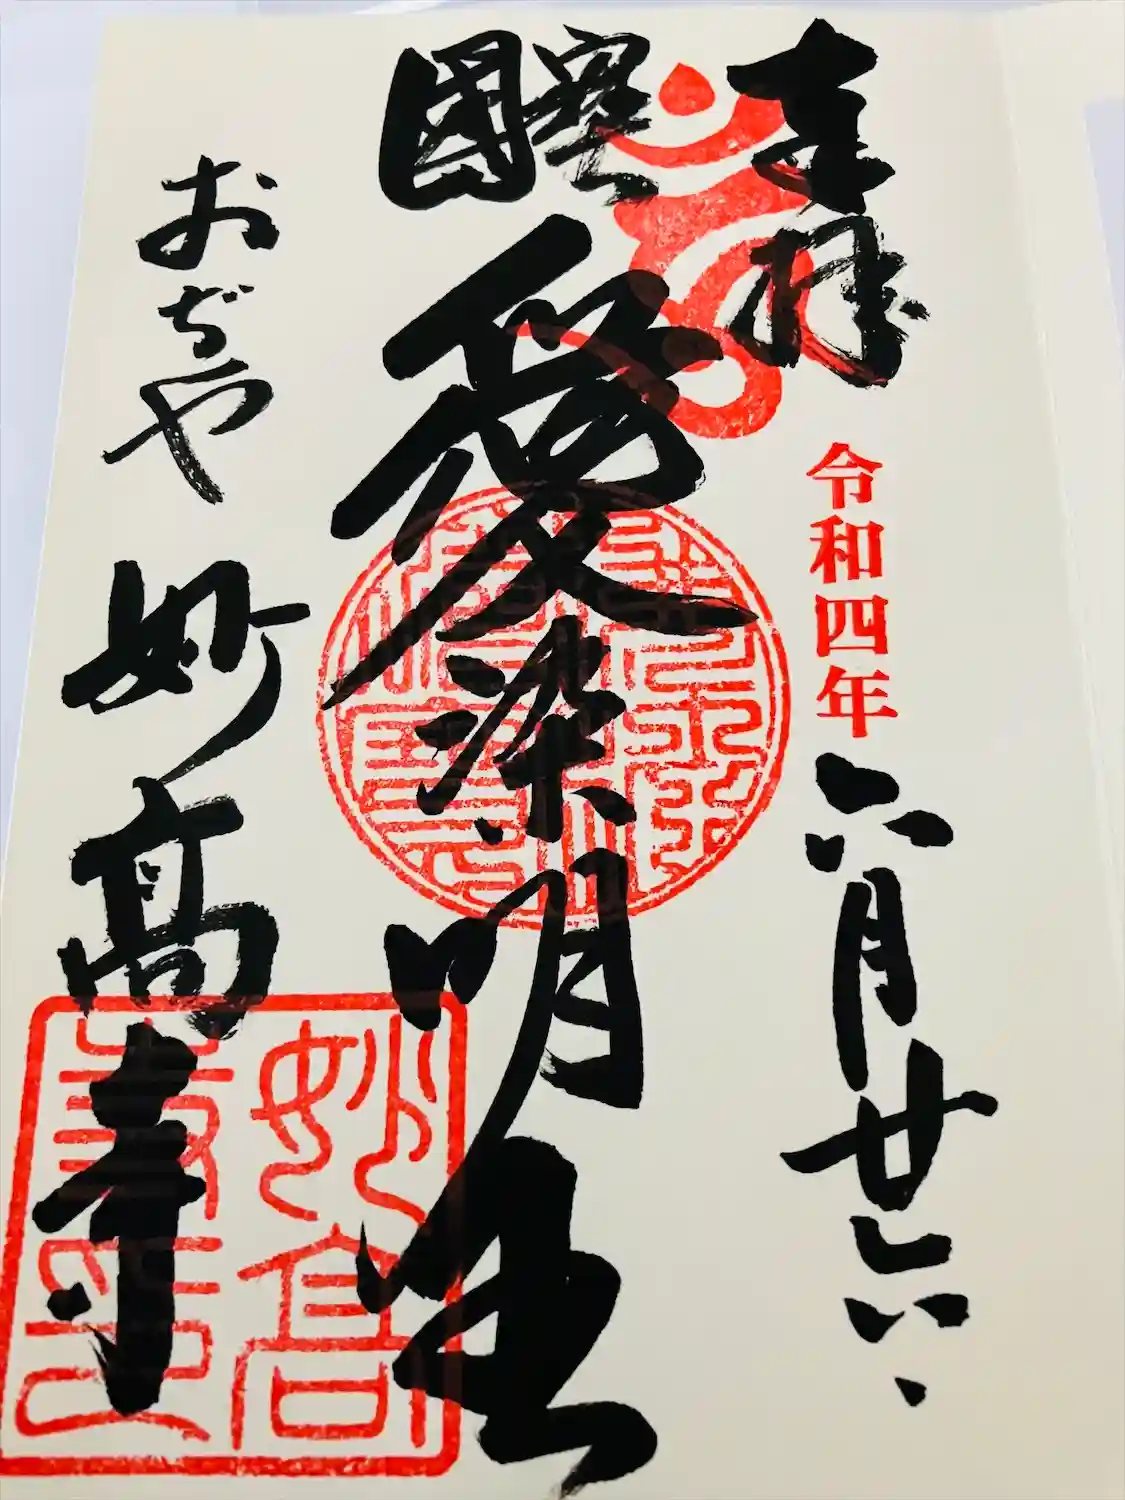 奉拝
令和四年六月廿六日
國寳
愛染明王
おぢや
妙高寺
妙高